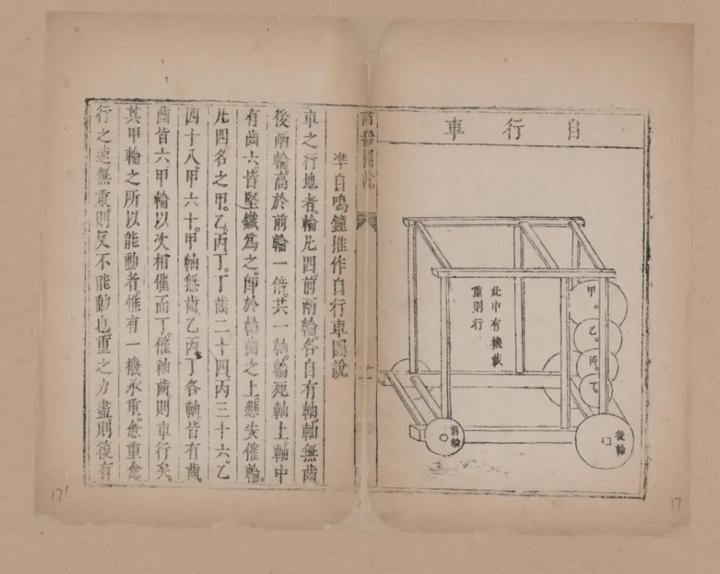 自行車
此中有機載
重則行
甲
乙
丁
前輪
後輪
諸器圖說
準自鳴鐘推作自行車圖說
車之行地者輪凡四前兩輪各自有軸軸無齒
後兩輪高於前輪一倍共一軸輪死軸上軸中
有齒六皆堅鐵為之即於軸齒之上懸安催輪
凡四名之甲乙丙丁丁齒二十四丙三十六乙
四十八甲六十甲軸無齒乙丙丁各軸皆有齒
齒皆六甲輪以次相催而丁催軸齒則車行矣
其甲輪之所以能動者惟有一機承重愈重愈
行之速無重則反不能動也重之力盡則復有
17
17